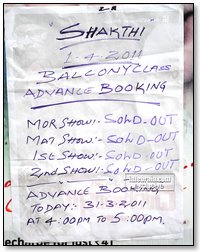 "SHAKTHI"
1-4-2011
BALCONY CLASS
ADVANCE BOOKING
MOR SHOW:- SOLD-OUT
MAT SHOW:- SOLD-OUT
1ST SHOW:- SOLD-OUT
2ND SHOW:- SOLD-OUT
ADVANCE BOOKING
TODAY:- 31-3-2011
AT 4:00PM TO 5:00PM.